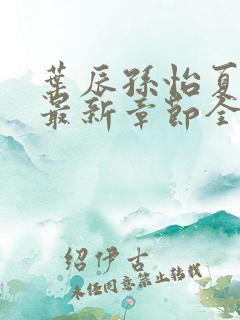 叶辰孙怡夏
最新章节全
绍伊古
未经同意禁止转载